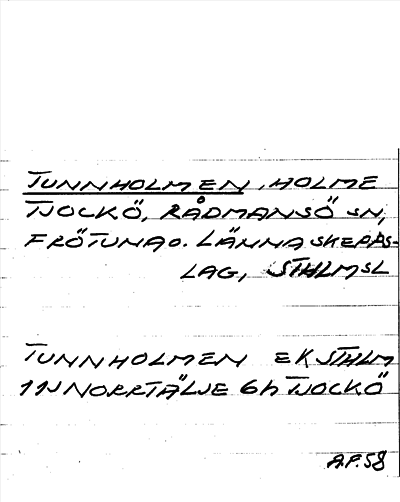 TUNNHOLMEN, HOLME
TJOCKÖ, RÅDMANSÖ SN,
FRÖTUNA O. LÄNNA SKEPPS-
LAG, STHLMSL
TUNNHOLMEN EK STHLM
11J NORRTÄLJE 6h TJOCKÖ
A.P.58